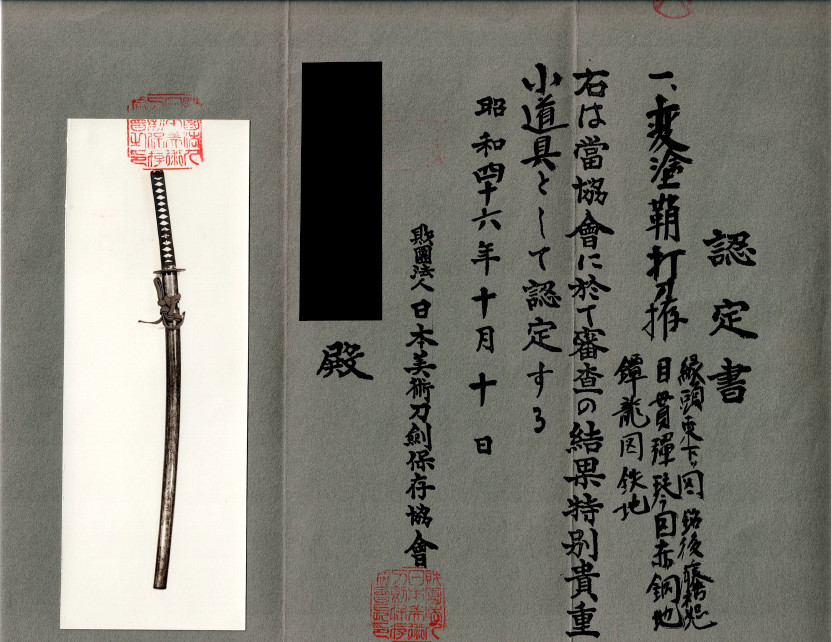 認定書
一、変塗鞘打刀拵
縁頭東下り図 銘後藤
目貫弾琴図赤銅地
鐔龍図鉄地
右は當協會に於て審査の結果特別貴重
小道具として認定する
昭和四十六年十月十日
財團法人日本美術刀劍保存協會
殿